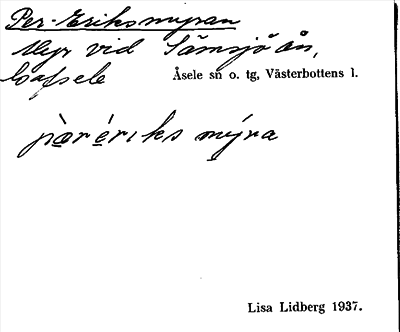 Per-Eriksmyran
Myr vid Sämsjöån,
Gafsele Åsele sn o. tg, Västerbottens l.
pàr ériks mýra
Lisa Lidberg 1937.